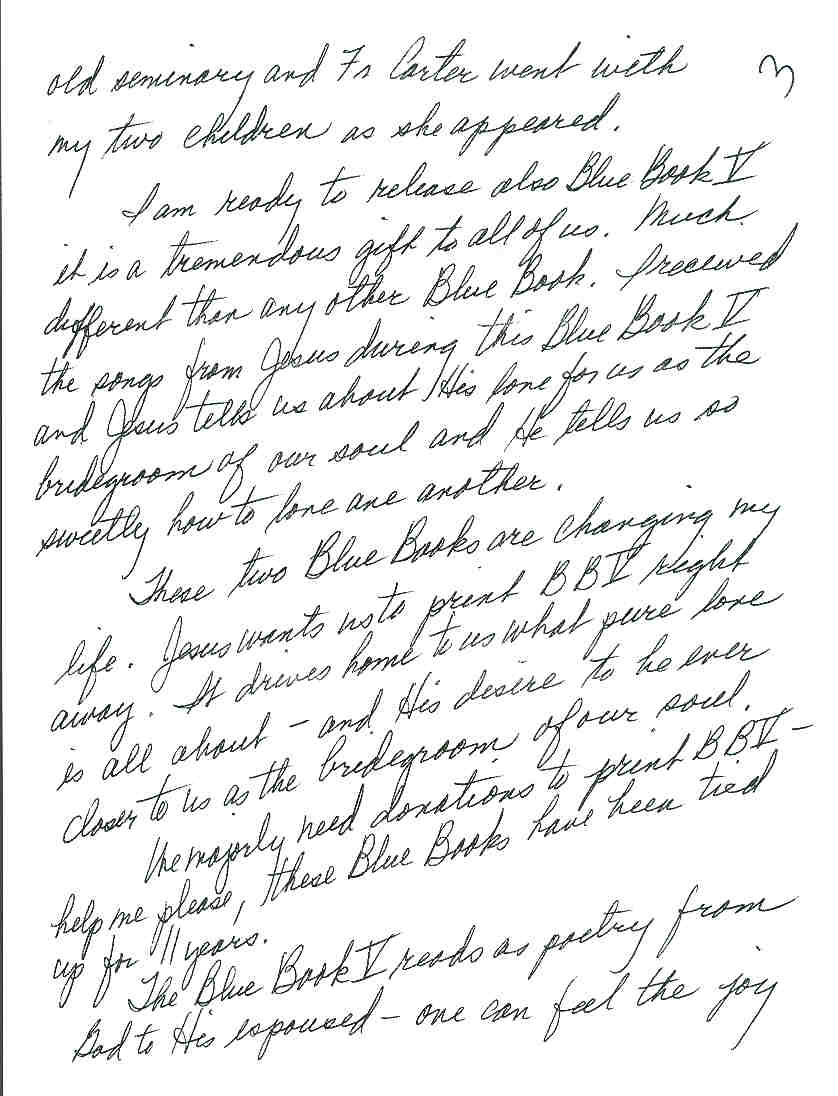 3
old seminary and Fr Carter went with
my two children as she appeared.
I am ready to release also Blue Book V
it is a tremendous gift to all of us. Much
different than any other Blue Book. I received
the songs from Jesus during this Blue Book V
and Jesus tells us about His love for us as the
bridegroom of our soul and He tells us so
sweetly how to love one another.
These two Blue Books are changing my
life. Jesus wants us to print BBV right
away. It drives home to us what pure love
is all about - and His desire to be ever
closer to us as the bridegroom of our soul.
We majorly need donations to print BBV -
help me please, these Blue Books have been tied
up for 11 years.
The Blue Book V reads as poetry from
God to His espoused - one can feel the joy